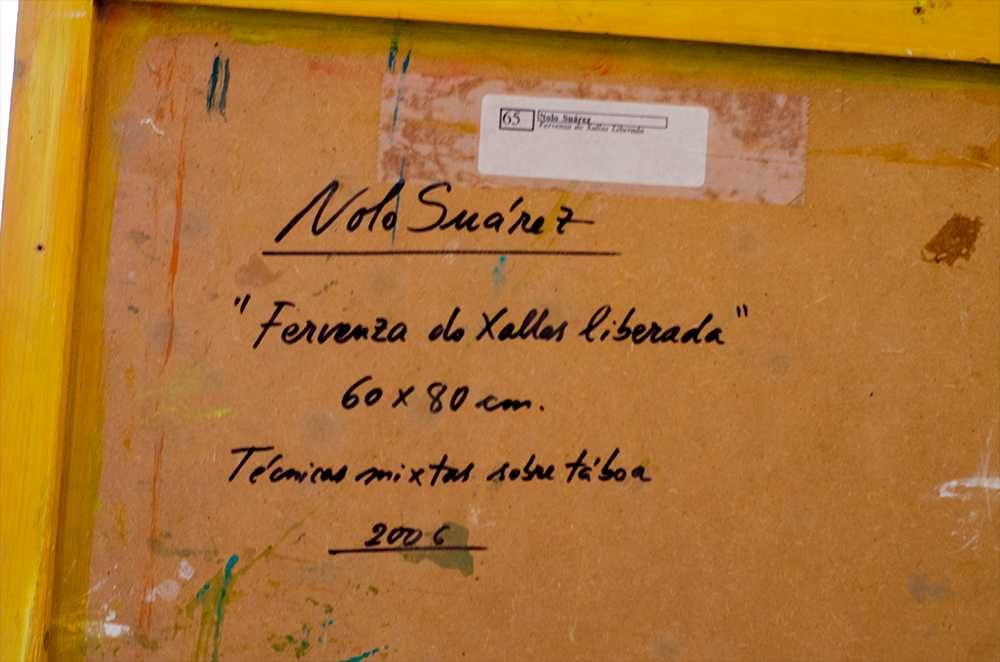 65 Nolo Suárez
Fervenza do Xallas Liberada
Nolo Suárez
"Fervenza do Xallas liberada"
60 x 80 cm.
Técnicas mixtas sobre táboa
2006